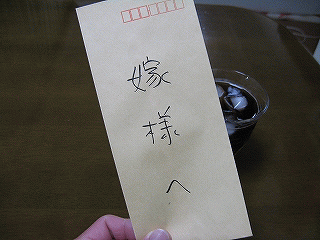 嫁様へ